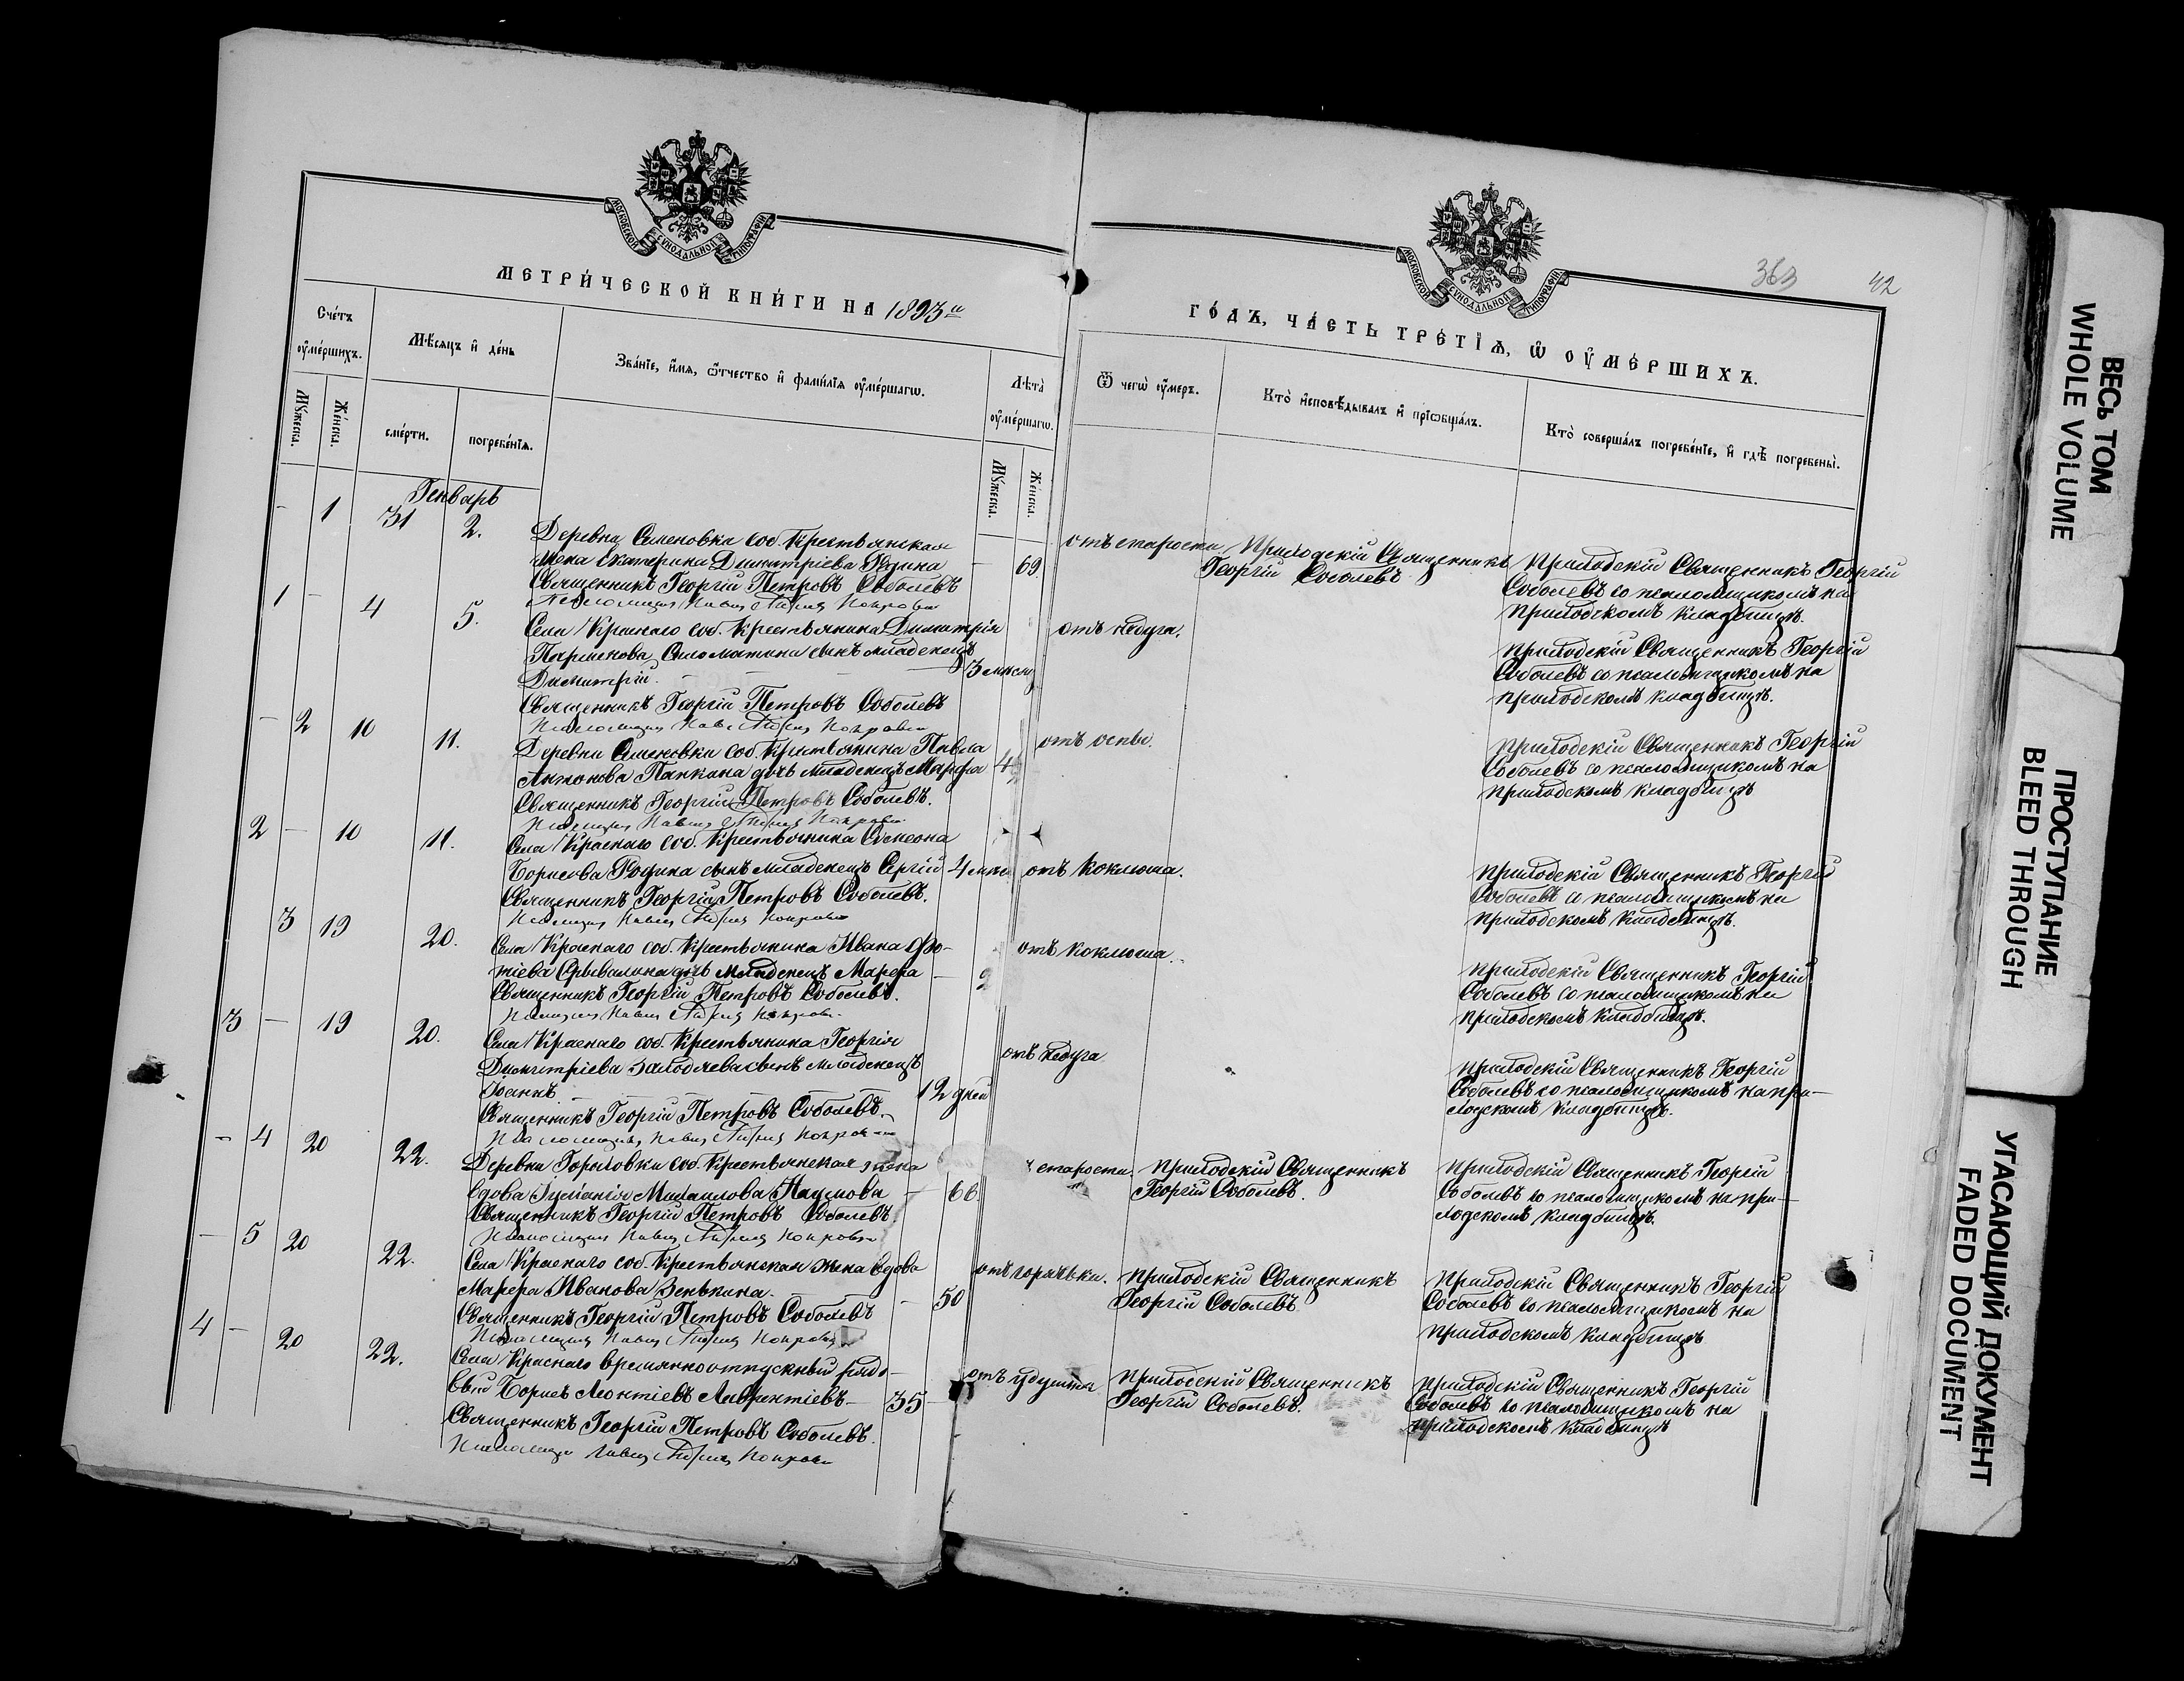 363 42
МОСКОВСКОЙ СѴНОДАЛЬНОЙ ТИПОГРАФІИ
МОСКОВСКОЙ СѴНОДАЛЬНОЙ ТИПОГРАФІИ
МЕТРИ́ЧЕСКОЙ КНИ́ГИ НА 1893 й
ГО́ДЪ, ЧА́СТЬ ТРЕ́ТІѦ, Ѡ҆ ОУ҆МЕ́РШИХЪ.
Сче́тъ оу҆ме́ршихъ.
Му́жеска.
Же́нска.
Мѣ́сяцъ и҆ де́нь
сме́рти.
погребе́нїѧ.
Зва́нїе, и҆́мѧ, ѻ҆́тчество и҆ фами́лїѧ оу҆ме́ршагѡ.
Лѣ́та оу҆ме́ршагѡ.
Му́жеска.
Же́нска.
Ѿ чегѡ̀ оу҆́меръ.
Кто̀ и҆сповѣ́дывалъ и҆ прїѡбща́лъ.
Кто̀ соверша́лъ погребе́нїе, и҆ гдѣ̀ погребены̀.
Генварь
- 1 31 2.
Деревни Семеновки соб. Крестьянская
жена Екатерина Димитріева Родина - 69.
Священникъ Георгій Петровъ Соболевъ
отъ старости
Приходскій Священникъ
Георгій Соболевъ
Приходскій Священникъ Георгій
Соболевъ со псаломщикомъ на
приходскомъ кладбищѣ.
1 - 4 5.
Села Краснаго соб. Крестьянина Димитрія
Парменова Саломатина сынъ младенецъ
Димитрій. 3 мѣсяц
Священникъ Георгій Петровъ Соболевъ
отъ недуга.
Приходскій Священникъ Георгій
Соболевъ со псаломщикомъ на
приходскомъ кладбищѣ.
- 2 10 11.
Деревни Семеновки соб. Крестьянина Павла
Антонова Папкина дочь младенецъ Марфа 4
Священникъ Георгій Петровъ Соболевъ.
отъ оспы.
Приходскій Священникъ Георгій
Соболевъ со псаломщикомъ на
приходскомъ кладбищѣ
2 - 10 11.
Села Краснаго соб. Крестьянина Симеона
Борисова Родина сынъ младенецъ Сергій 4
Священникъ Георгій Петровъ Соболевъ.
отъ коклюша.
Приходскій Священникъ Георгій
Соболевъ со псаломщикомъ на
приходскомъ кладбищѣ.
3 19 20.
Села Краснаго соб. Крестьянина Ивана Фо-
тіева дочь младенецъ Марфа - 2
Священникъ Георгій Петровъ Соболевъ.
отъ коклюша.
Приходскій Священникъ Георгій
Соболевъ со псаломщикомъ на
приходскомъ кладбищѣ.
3 - 19 20.
Села Краснаго соб. Крестьянина Георгія
Димитріева сынъ младенецъ
Іоаннъ 12 дней
Священникъ Георгій Петровъ Соболевъ.
отъ недуга
Приходскій Священникъ Георгій
Соболевъ со псаломщикомъ на при-
ходскомъ кладбищѣ.
- 4 20 22.
Деревни Гороховки соб. Крестьянская жена
вдова Михаилова Наумова - 66.
Священникъ Георгій Петровъ Соболевъ.
старости.
Приходскій Священникъ
Георгій Соболевъ.
Приходскій Священникъ Георгій
Соболевъ со псаломщикомъ на при-
ходскомъ кладбищѣ.
- 5 20 22.
Села Краснаго соб. Крестьянская жена вдова
Марфа Иванова Зенькина. - 50
Священникъ Георгій Петровъ Соболевъ
отъ горячьки.
Приходскій Священникъ
Георгій Соболевъ
Приходскій Священникъ Георгій
Соболевъ со псаломщикомъ на
приходскомъ кладбищѣ
4 - 20 22.
Села Краснаго временноотпускный рядо-
вый Борисъ Леонтіевъ Лаврентіевъ - 35 -
Священникъ Георгій Петровъ Соболевъ.
отъ удушья
Приходскій Священникъ
Георгій Соболевъ.
Приходскій Священникъ Георгій
Соболевъ со псаломщикомъ на
приходскомъ кладбищѣ
ВЕСЬ ТОМ
WHOLE VOLUME
ПРОСТУПАНИЕ
BLEED THROUGH
УГАСАЮЩИЙ ДОКУМЕНТ
FADED DOCUMENT